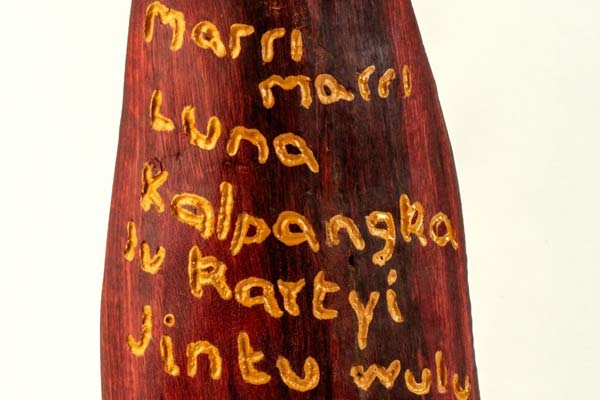 Marri
marri
Luna
Kalpangka
Kartyi
Jintu wulu